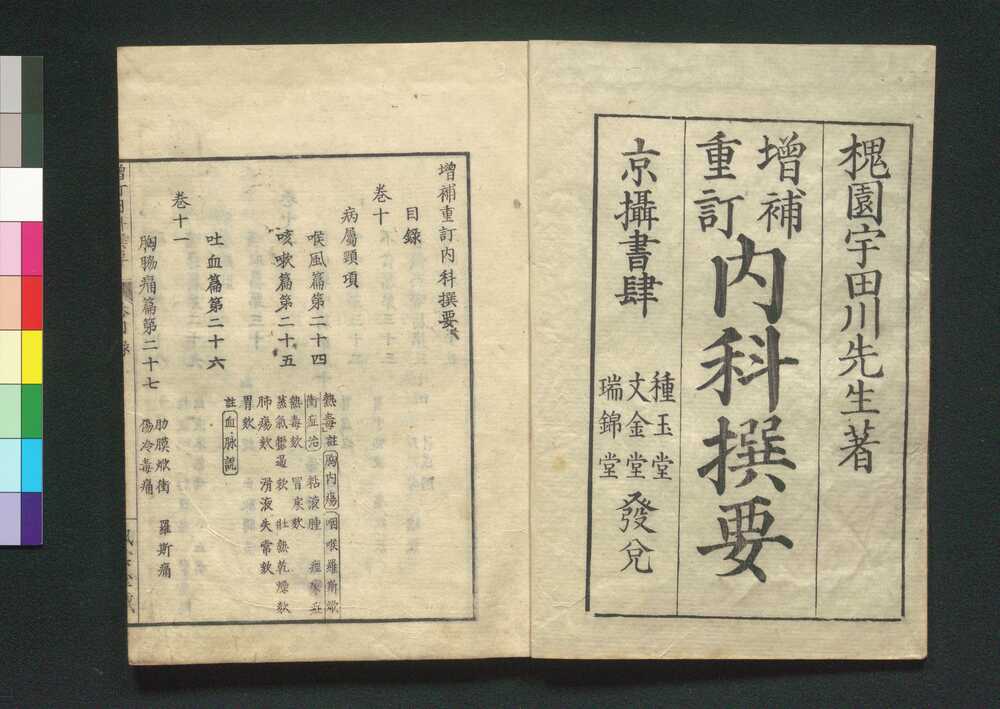 槐園宇田川先生著
增補
重訂
内科撰要
京攝書肆
種玉堂
文金堂
瑞錦堂
發兌
增補重訂内科撰要
目録
卷十
病屬頸項
喉風篇第二十四
熱毒
註
胸内瘍
咽喉羅斯
衝症治
粘液腫
咳嗽篇第二十五
熱毒欬
冒寒欬
蒸氣鬱遏欬
壯熱乾燥欬
肺瘍欬
滑液失常欬
胃欬
吐血篇第二十六
註
血脉説
卷十一
胸膓痛篇第二十七
肋膜焮衝
羅斯痛
傷冷毒痛